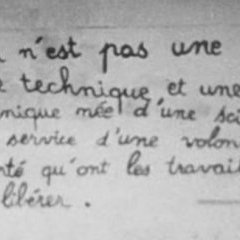 n'est pas une
technique et une
nique née d'une sci
service d'une volon
rté qu'ont les travail
libérer.